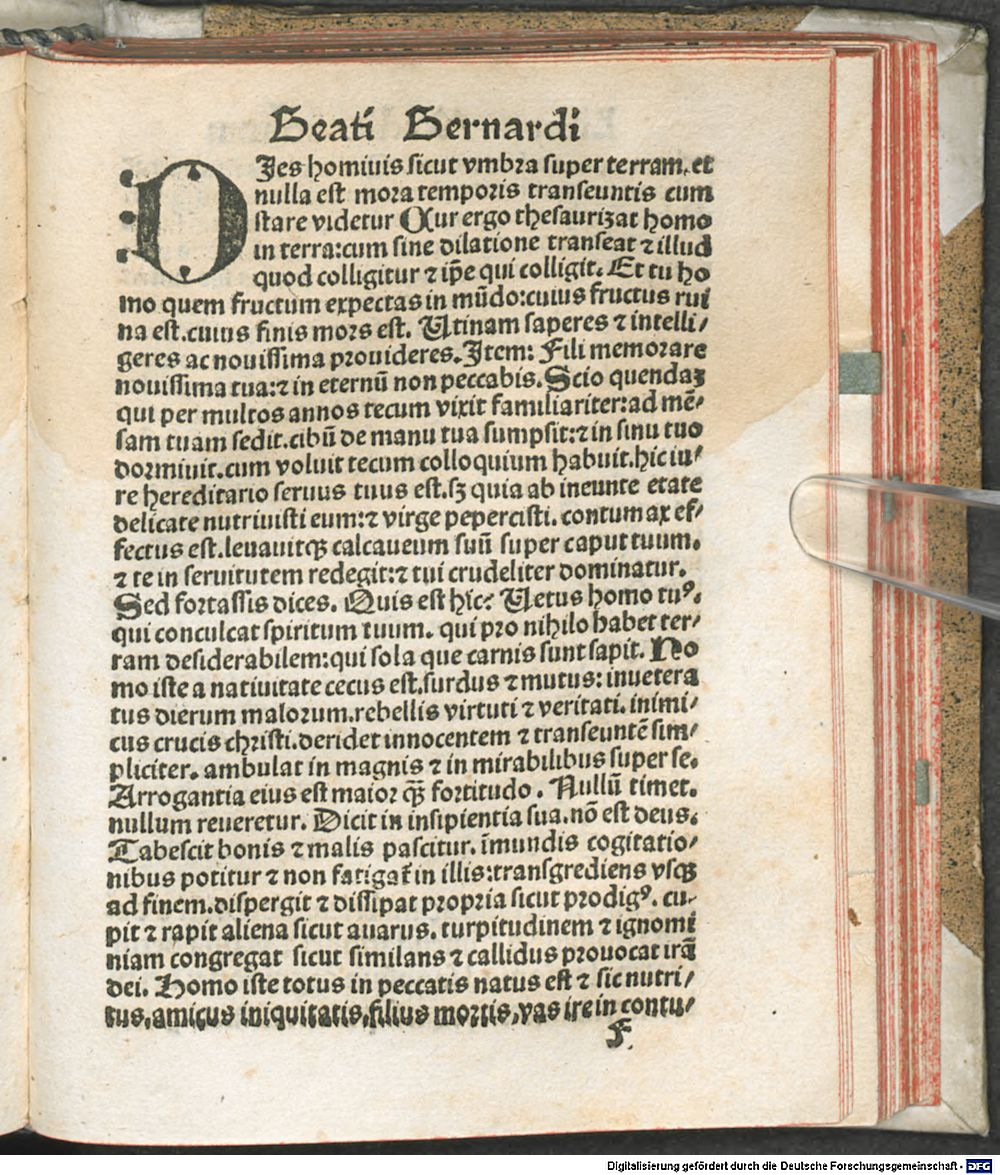 Beati Bernardi
DJes homiuis sicut vmbra super terram. et
nulla est mora temporis transeuntis cum
stare videtur Cur ergo thesaurizat homo
in terra:cum sine dilatione transeat ⁊ illud
quod colligitur ⁊ ip̄e qui colligit. Et tu ho
mo quem fructum expectas in mūdo:cuius fructus rui
na est.cuius finis mors est. Utinam saperes ⁊ intelli/
geres ac nouissima prouideres.Item: Fili memorare
nouissima tua:⁊ in eternū non peccabis.Scio quendaꝫ
qui per multos annos tecum vixit familiariter:ad mē/
sam tuam sedit.cibū de manu tua sumpsit:⁊ in sinu tuo
dormiuit.cum voluit tecum colloquium habuit.hic iu/
re hereditario seruus tuus est.sꝫ quia ab ineunte etate
delicate nutriuisti eum:⁊ virge pepercisti. contumax ef/
fectus est.leuauitqꝫ calcaueum suū super caput tuum.
⁊ te in seruitutem redegit:⁊ tui crudeliter dominatur.
Sed fortassis dices. Quis est hic? Uetus homo tuꝰ.
qui conculcat spiritum tuum. qui pro nihilo habet ter/
ram desiderabilem:qui sola que carnis sunt sapit. No
mo iste a natiuitate cecus est.surdus ⁊ mutus: inuetera
tus dierum malorum.rebellis virtuti ⁊ veritati. inimi/
cus crucis christi.deridet innocentem ⁊ transeuntē sim/
pliciter. ambulat in magnis ⁊ in mirabilibus super se.
Arrogantia eius est maior qꝫ̄ fortitudo. Nullū timet.
nullum reueretur. Dicit in insipientia sua.nō est deus.
Tabescit bonis ⁊ malis pascitur. īmundis cogitatio/
nibus potitur ⁊ non fatigat̄ in illis:transgrediens vsqꝫ
ad finem.dispergit ⁊ dissipat propria sicut prodigꝰ. cu-
pit ⁊ rapit aliena sicut auarus. turpitudinem ⁊ ignomi
niam congregat sicut similans ⁊ callidus prouocat irā
dei. Homo iste totus in peccatis natus est ⁊ sic nutri/
tus,amicus iniquitatis,filius mortis,vas ire in contu/
F
Digitalisierung gefördert durch die Deutsche Forschungsgemeinschaft - DFG